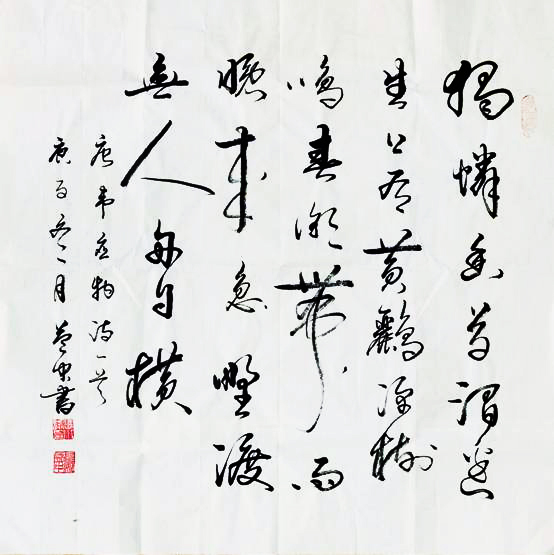 獨憐幽草澗邊
生上有黃鸝深樹
鳴春潮帶雨
晚來急野渡
無人舟自橫
唐韋應物詩一首
庚子冬二月書